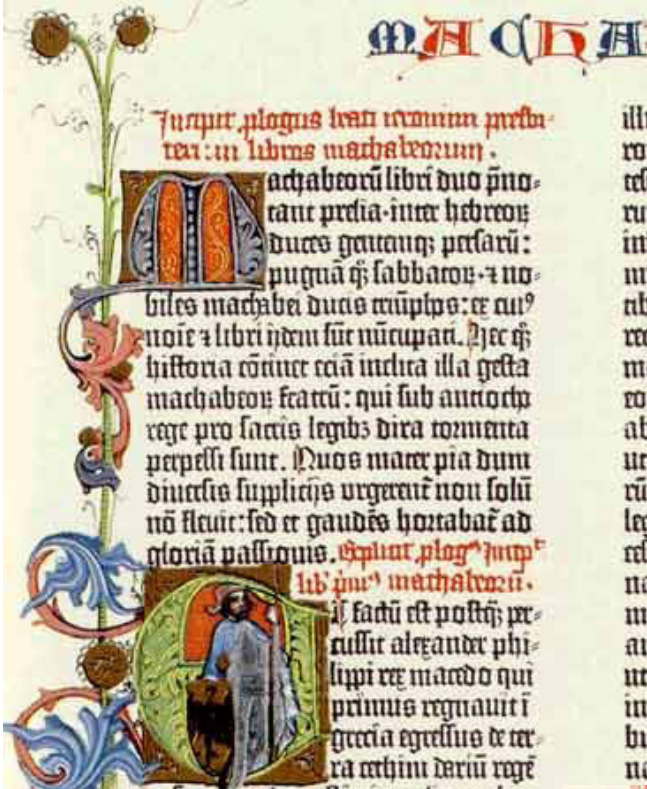 MACHA
Incipit plogus beati ieronimi presbi-
teri: in libros machabeorum.
Machabeorū libri duo p̄no-
tant prelia·inter hebreoꝝ
duces gentemqꝫ persarū:
pugnā qꝫ sabbatoꝝ·⁊ no-
biles machabei ducis triūphos: ex cuiꝰ
noīe ⁊ libri ijdem sūt nūcupati. Hec qꝫ
historia cōtinet eciā inclita illa gesta
machabeoꝝ fratrū: qui sub antiocho
rege pro sacris legibꝫ dira tormenta
perpessi sunt. Quos mater pia dum
diuersis supplicijs urgerent̄ non solū
nō fleuit: sed et gaudēs hortabat̄ ad
gloriā passionis. Explicit plogꝰ Incipᵗ
lib' p̄mꝰ machabeorū.
Et factū est postqꝫ per-
cussit alexander phi-
lippi rex macedo qui
primus regnauit ī
grecia egressus de ter-
ra cethim dariū regē